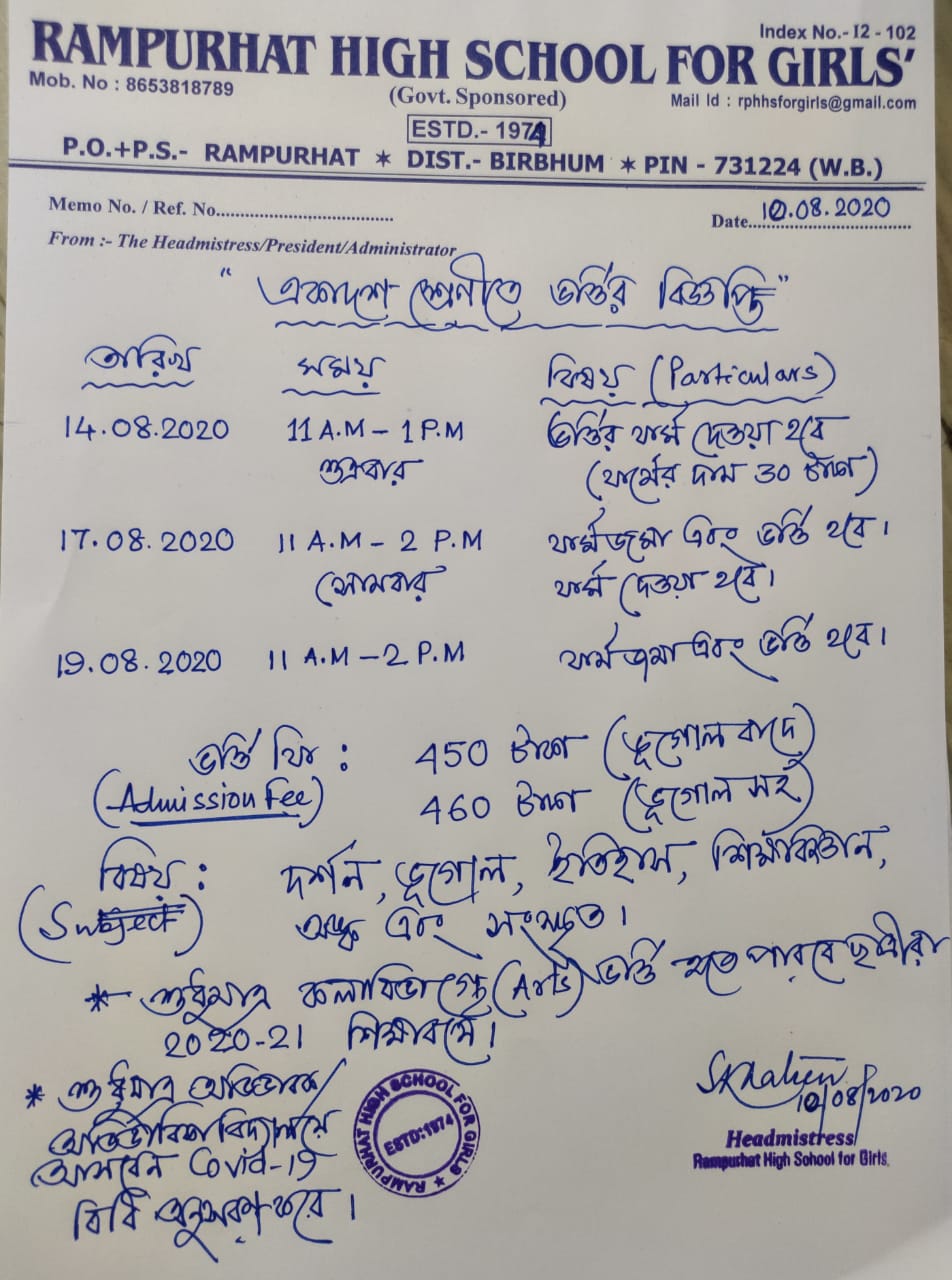 Index No.- I2 - 102
RAMPURHAT HIGH SCHOOL FOR GIRLS'
Mob. No : 8653818789
(Govt. Sponsored)
Mail Id : rphhsforgirls@gmail.com
ESTD.- 1974
P.O.+P.S.- RAMPURHAT ✶ DIST.- BIRBHUM ✶ PIN - 731224 (W.B.)
Memo No. / Ref. No....................................
Date 10.08.2020
From :- The Headmistress/President/Administrator
" একাদশ শ্রেণীতে ভর্ত্তির বিজ্ঞপ্তি "
তারিখ সময় বিষয় (Particulars)
14.08.2020 11 A.M – 1 P.M ভর্ত্তির ফার্ম দেওয়া হবে
শুক্রবার (ফার্মের দাম 30 টাকা)
17.08.2020 11 A.M – 2 P.M ফার্ম জমা এবং ভর্ত্তি হবে।
সোমবার ফার্ম দেওয়া হবে।
19.08.2020 11 A.M – 2 P.M ফার্ম জমা এবং ভর্ত্তি হবে।
ভর্ত্তি ফি : 450 টাকা (ভূগোল বাদে)
(Admission Fee) 460 টাকা (ভূগোল সহ)
বিষয় : দর্শন, ভূগোল, ইতিহাস, শিক্ষাবিজ্ঞান,
(Subject) অঙ্ক এবং সংস্কৃত।
* শুধুমাত্র কলাবিভাগে (Arts) ভর্ত্তি হতে পারবে ছাত্রীরা
2020-21 শিক্ষাবর্ষে।
* শুধুমাত্র অভিভাবক/
অভিভাবিকা বিদ্যালয়ে
আসবেন Covid-19
বিধি অনুসরণ করে।
RAMPURHAT HIGH SCHOOL FOR GIRLS
ESTD:1974
10/08/2020
Headmistress
Rampurhat High School for Girls